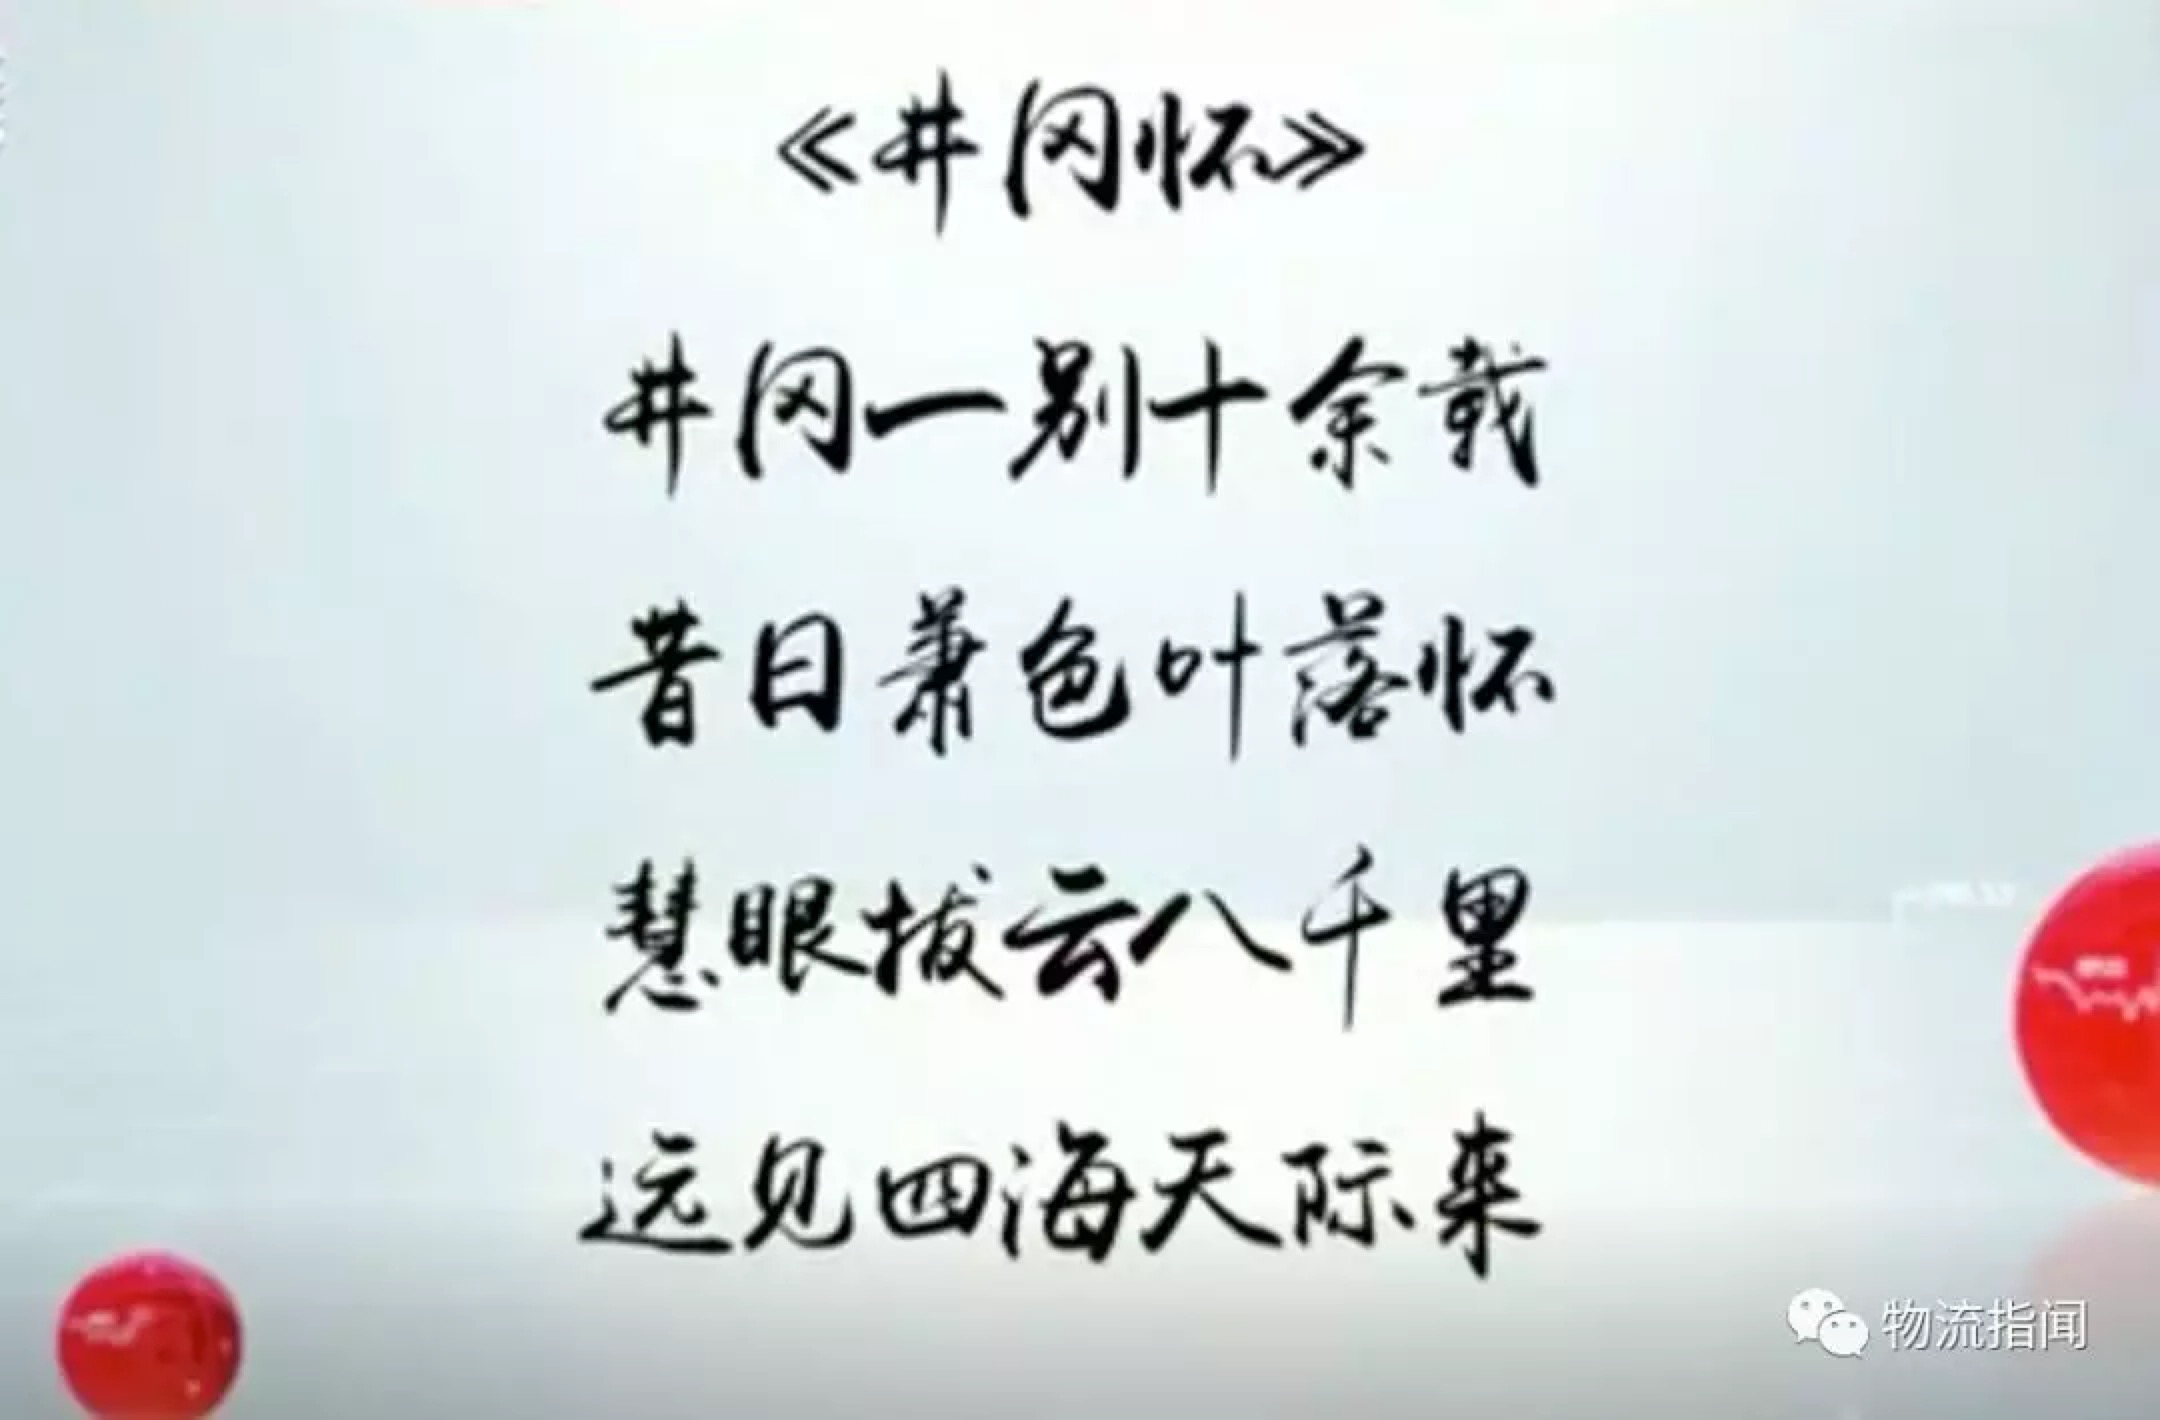 《井冈怀》
井冈一别十余载
昔日萧色叶落怀
慧眼拔云八千里
远见四海天际来
物流指闻